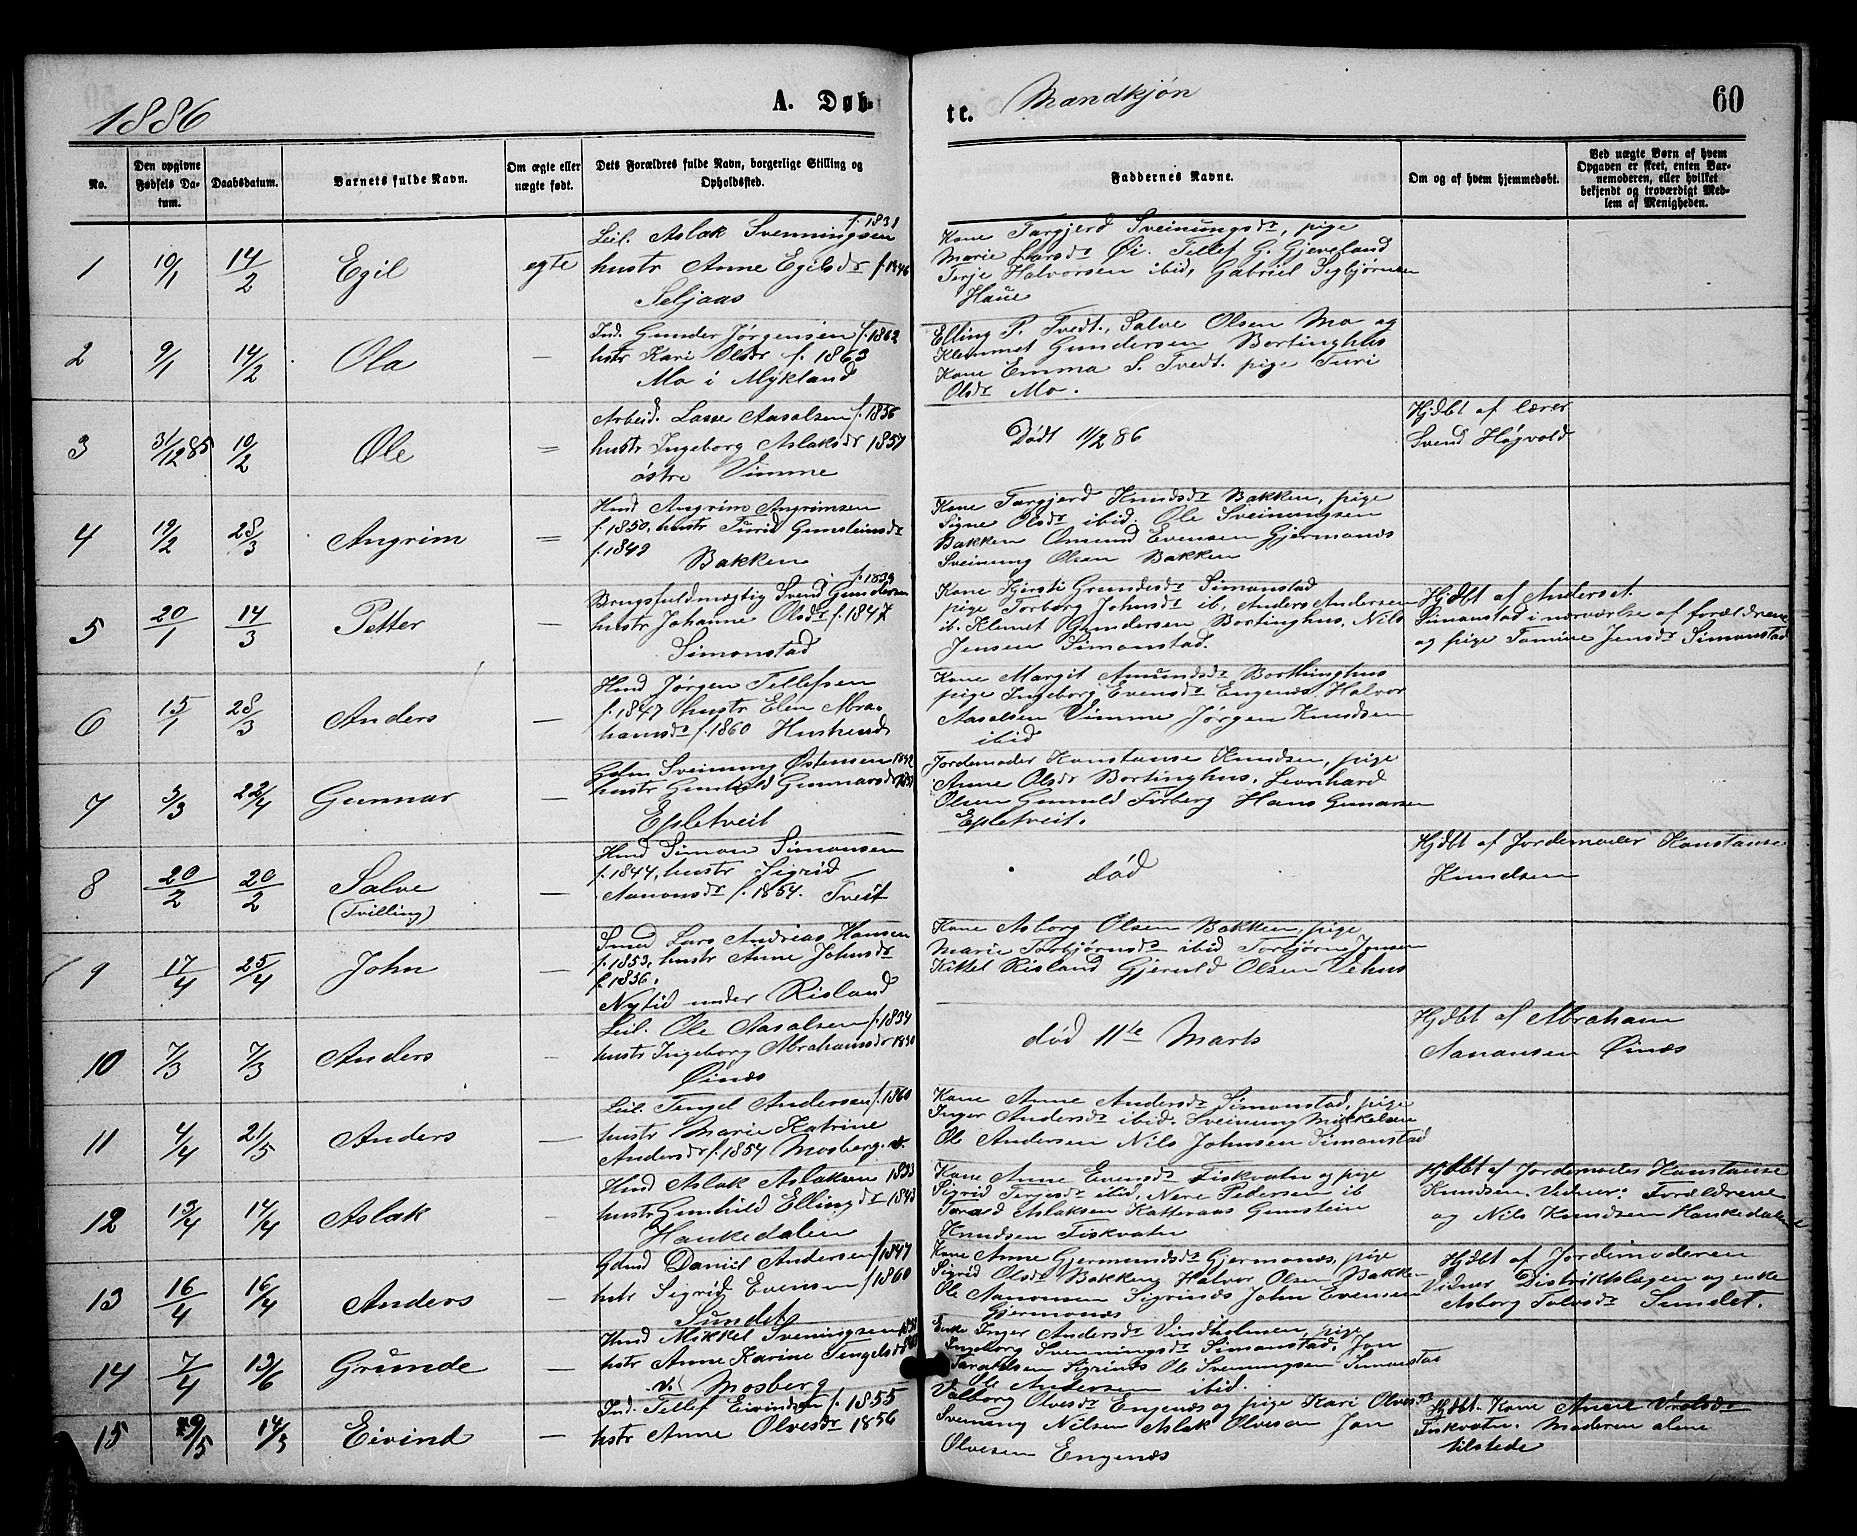 1886
A. Døb-
te.
Mandkjøn
60
No.
Den opgivne
Fødsels Da-
tum.
Daabsdatum.
Barnets fulde Navn.
Om ægte eller
uægte født.
Dets Forældres fulde Navn, borgerlige Stilling og
Opholdssted.
Faddernes Navne.
Om og af hvem hjemmedøbt.
Ved uægte Børn af hvem
Opgaven er skeet, enten Bar-
nemoderen, eller hvilket
bekjendt og troværdigt Med-
lem af Menigheden.
1
10/1
14/2
Egil
egte
Leil. Aslak Svenningsen f. 1831
hustr Anne Egilsdr f. 1846
Seljaas
Kone Targjerd Sveinungsdr, pige
Marie Larsdr Øi. Tellef G. Gjeveland
Terje Halvorsen ibid, Gabriel Sigbjørnsen
Haue
2
9/1
14/2
Ola
—
Ind. Gunder Jørgensen f. 1862
hstr Kari Olsdr f. 1863
Mo i Mykland
Elling P. Tvedt., Salve Olsen Mo og
Klemmet Gundersen Bortinghus
Kone Emma S. Tvedt. pige Turi
Olsdr Mo.
3
31/12 85
10/2
Ole
=
Arbeid. Lasse Aasalsen f. 1836
hustr Ingeborg Aslaksdr 1857
østre Vimme
Dødt 11/2 86
Hjdbt af lærer
Svend Høgvold
4
19/2
28/3
Angrim
=
Hmd Angrim Angrimsen
f. 1850, hustr Turid Gunsteinsdr
f. 1849
Bakken
Kone Targjerd Knudsdr Bakken, pige
Signe Olsdr ibid. Ole Sveinungsen
Bakken Omund Evensen Gjermonæs
Sveinung Olsen Bakken
5
20/1
14/3
Petter
—
f. 1839
Brugsfuldmægtig Svend Gundersen
hustr Johanne Olsdr f. 1847
Simonstad
Kone Kjersti Grundesdr Simonstad
pige Torborg Johnsdr ib, Anders Andersen
ib. Klemet Gundersen Bortinghus, Nils
Jensen Simonstad.
Hjdbt af Anderset.
Simonstad i nærværelse af forældrene
og pige Tomine Jensdr Simonstad
6
15/1
28/3
Anders
—
Hmd Jørgen Tellefsen
f. 1847 hustr Elen Abra-
hamsdr f. 1860 Hushend
Kone Margit Amundsdr Borthinghus
pige Ingeborg Evensdr Engenæs, Halvor
Aasalsen Vimme Jørgen Knudsen
ibid
7
3/3
22/4
Gunnar
—
Sveinung Østensen 1842
hustr Gunhild Gunnarsdr
Espletveit
Jordemoder Konstanse Knudsen, pige
Anne Olsdr Bortinghus. Leonhard
Olsen Gunuld Torberg Hans Gunarsen
Espletveit.
8
20/2
20/2
Salve
(Tvilling)
—
Hmd Simon Simonsen
f. 1844, hustr Sigrid
Aanonsdr f. 1854. Tveit
død
Hjdbt af Jordemoder Konstanse
Knudsen
9
17/4
25/4
John
—
Smed Lars Andreas Hansen
f. 1853, hustr Anne Johnsdr
f. 1836.
Nytid under Risland
Kone Asborg Olsen Bakken, pige
Marie Torbjørnsdr ibid Torbjørn Jonsen
Kittel Risland Gjeruld Olsen Vehus
10
7/3
7/3
Anders
—
Leil. Ole Aasalsen f. 1834
hustr Ingeborg Abrahamsdr 1830
Øinæs
død 11te Marts
Hjdbt af Abraham
Aanonsen Øinæs
11
4/4
21/5
Anders
—
Leil. Tengel Andersen f. 1860
hustr Marie Katrine
Andersdr f. 1854 Mosberg.
Kone Anne Andersdr Simonstad, pige
Inger Andersdr ibid. Sveinung Mikkelsen
Ole Andersen Nils Johnsen Simonstad
12
13/4
14/4
Aslak
—
Hmd Aslak Aslaksen 1833
hustr Gunhild Ellingdr 1843
Haukedalen
Kone Anne Evensdr Fiskvatn og pige
Sigrid Terjesdr ibid, Nere Pedersen ib
Torald Aslaksen Katteraas Gunstein
Knudsen Fiskvatn
Hjdbt af Jordemodes Konstanse
Knudsen. Vidner: Forældrene
og Nils Knudsen Haukedalene
13
16/4
16/4
Anders
—
Gdmd Daniel Andersen f. 1847
hstr Sigrid Evensen f. 1860
Sundet
Kone Anne Gjermundsdr Gjermonæs, pige
Sigrid Olsdr Bakken, Halvor Olsen Bakken
Ole Aanonsen Sigrinæs John Evensen
Gjermonæs
Hjdbt af Jordemoderen
Vidner Distriktslægen og enke
Asborg Tolvsdr Sundet.
14
7/4
13/6
Grunde
—
Hmd Mikkel Sveningsen
hstr Anne Karine Tengelsdr
v. Mosberg
Enke Inger Andersdr Vindholmen, pige
Ingeborg Svenningsdr Simonstad, Jon
Taraldsen Sigrinæs Ole Svenningsen Simonstad
Ole Andersen ibid.
15
29/5
14/3
Eivind
—
Ind. Tellef Eivindsen f. 1855
hstr Anne Olvesdr 1856
Valborg Olvesdr Engenæs og pige Kari Olvesdr
Sveinung Nilsen Aslak Olvesen Jon
Olvesen Engenæs
Hjdbt. Kone Anne
Fiskvatn. Moderen alene
tilstede